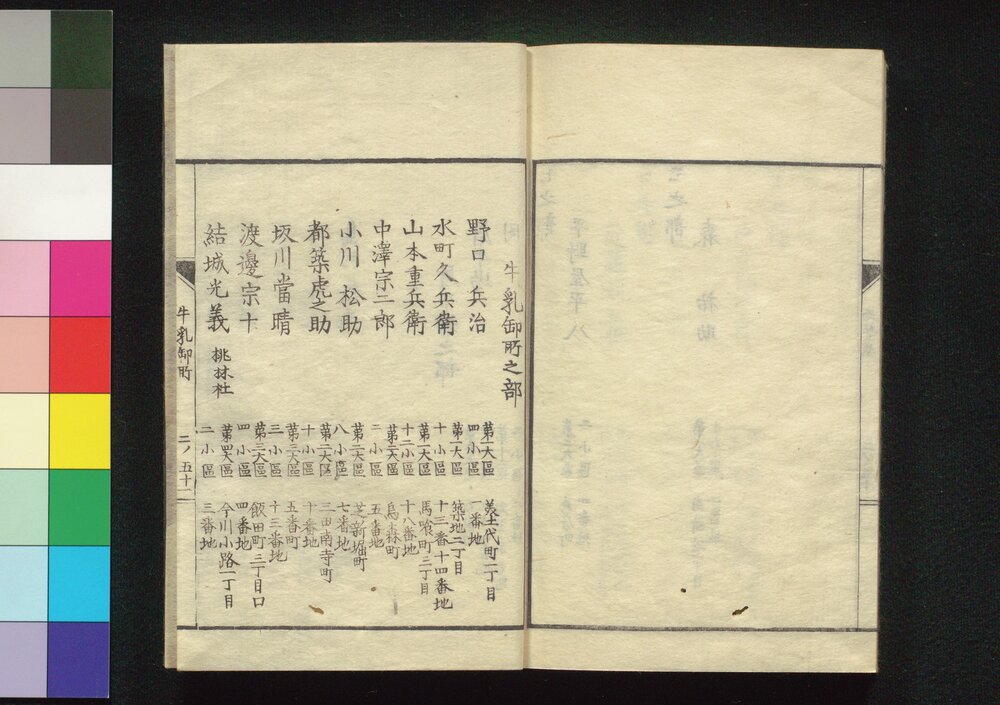 牛乳卸所之部
野口兵治
第一大區
四小區
美土代町二丁目
一番地
水町久兵衛
第一大區
十小區
築地二丁目
十三番十四番地
山本重兵衛
第一大區
十二小區
馬喰町三丁目
十八番地
中澤宗二郎
第二大區
二小區
烏森町
五番地
小川松助
第二大區
八小區
芝新堀町
七番地
都築虎之助
第二大區
十小區
三田南寺町
十番地
坂川當晴
第三大區
三小區
五番町
十三番地
渡邊宗十
第三大區
四小區
飯田町三丁目口
四番地
結城光義 桃林社
第四大區
二小區
今川小路一丁目
三番地
牛乳卸所
二ノ五十一